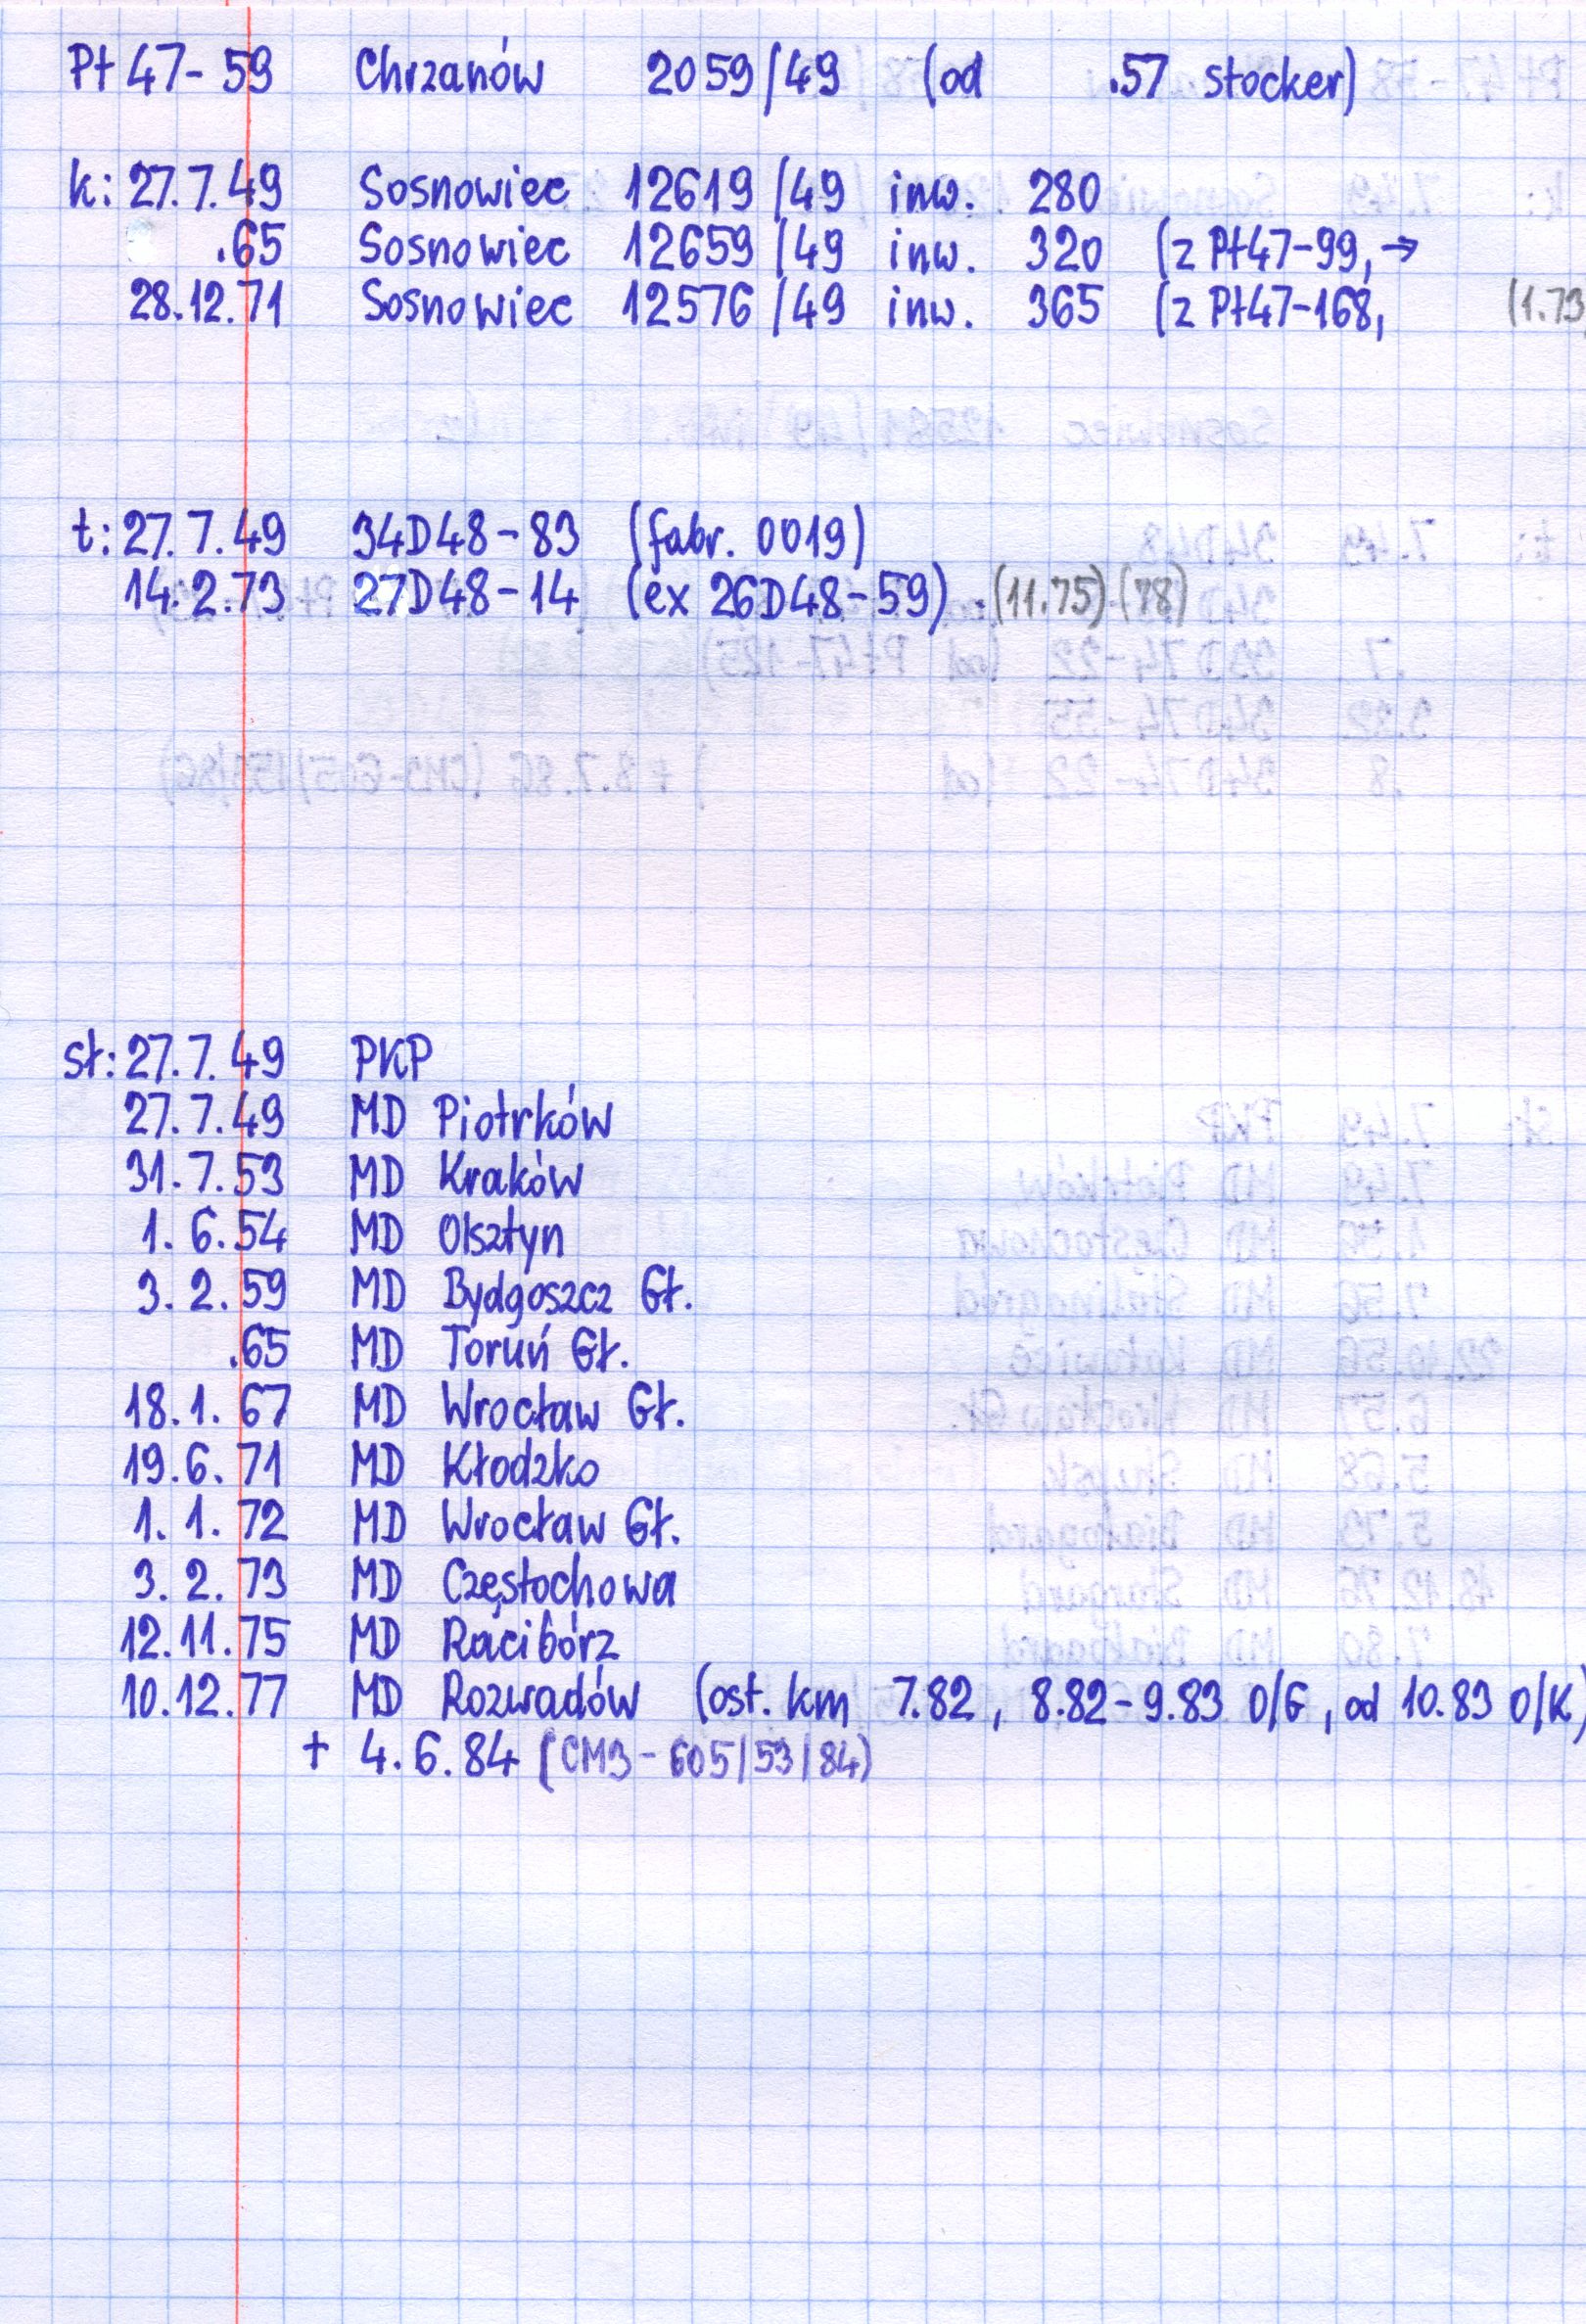 Pt 47-59 Chrzanów 2059/49 (od .57 stocker)
k: 27.7.49 Sosnowiec 12619/49 inw. 280
.65 Sosnowiec 12659/49 inw. 320 (z Pt47-99, →
28.12.71 Sosnowiec 12576/49 inw. 365 (z Pt47-168, (1.73)
t: 27.7.49 34D48-83 (fabr. 0019)
14.2.73 27D48-14 (ex 26D48-59) (11.75) (78)
sł: 27.7.49 PKP
27.7.49 MD Piotrków
31.7.53 MD Kraków
1.6.54 MD Olsztyn
3.2.59 MD Bydgoszcz Gł.
.65 MD Toruń Gł.
18.1.67 MD Wrocław Gł.
19.6.71 MD Kłodzko
1.1.72 MD Wrocław Gł.
3.2.73 MD Częstochowa
12.11.75 MD Racibórz
10.12.77 MD Rozwadów (ost. km 7.82, 8.82-9.83 O/G, od 10.83 O/K)
+ 4.6.84 (CM3-605/53/84)